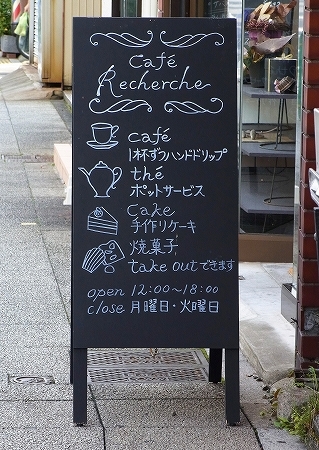 Café
Recherche
café
1杯ずつハンドドリップ
thé
ポットサービス
cake
手作りケーキ
焼菓子
take outできます
open 12:00〜18:00
close 月曜日・火曜日